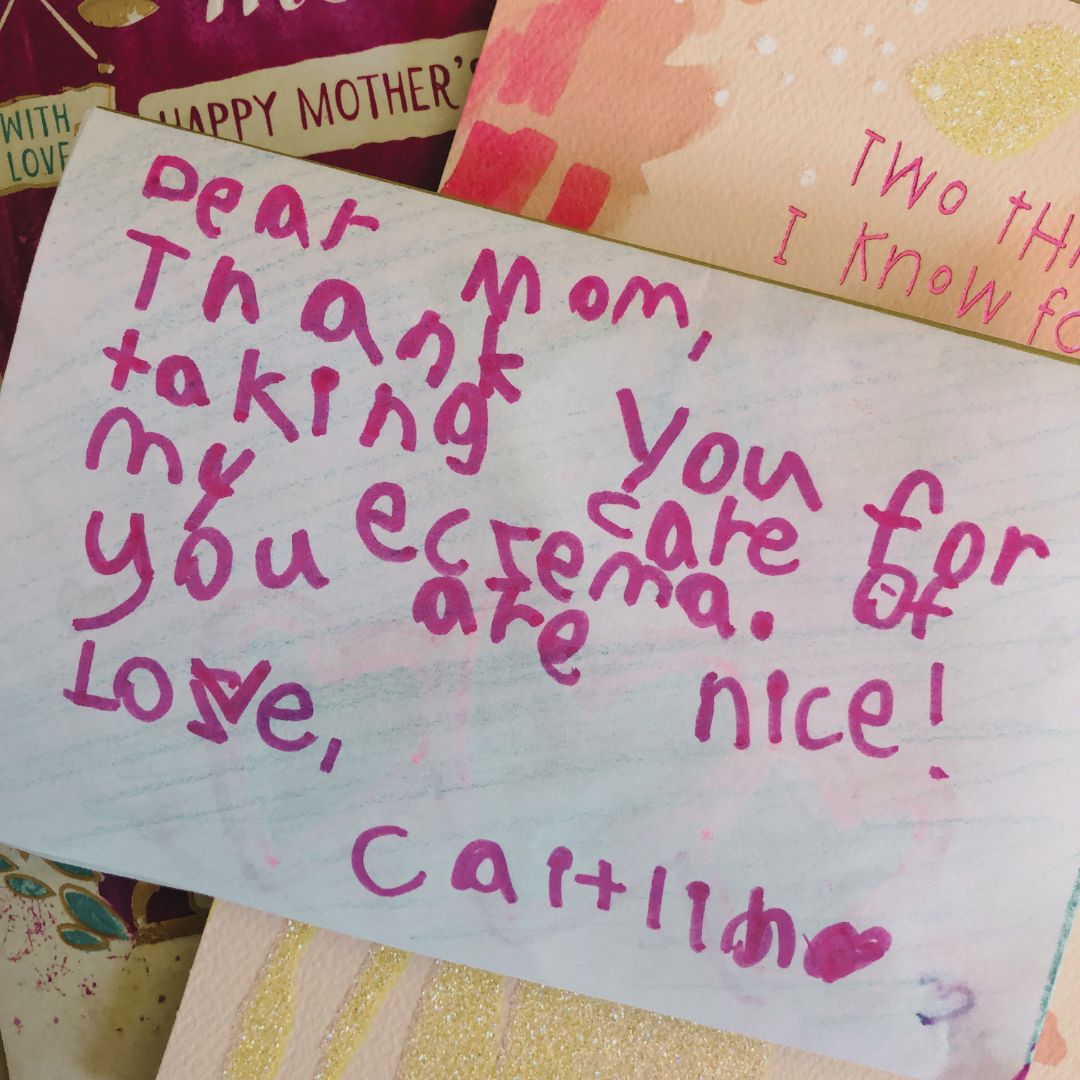 WITH
LOVE
HAPPY MOTHER'S
TWO
I KNOW
Dear Mom,
Thank you for
taking care of
my eczema.
you are nice!
Love,
Caitlin